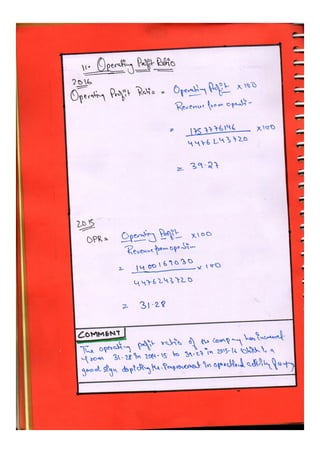 11. Operating Profit Ratio
2016
Operating Profit Ratio = Operating Profit x 100
Revenue from operatin
= 1757776146 x100
4476243720
= 39.27
2015
OPR = Operating Profit x100
Revenue from operatin
= 1400169030 x 100
4476243720
= 31.28
COMMENT
The operating profit ratio of the company has increased
from 31.28 in 2014-15 to 39.27 in 2015-16 which is a
good sign depicting the improvement in operational activity of